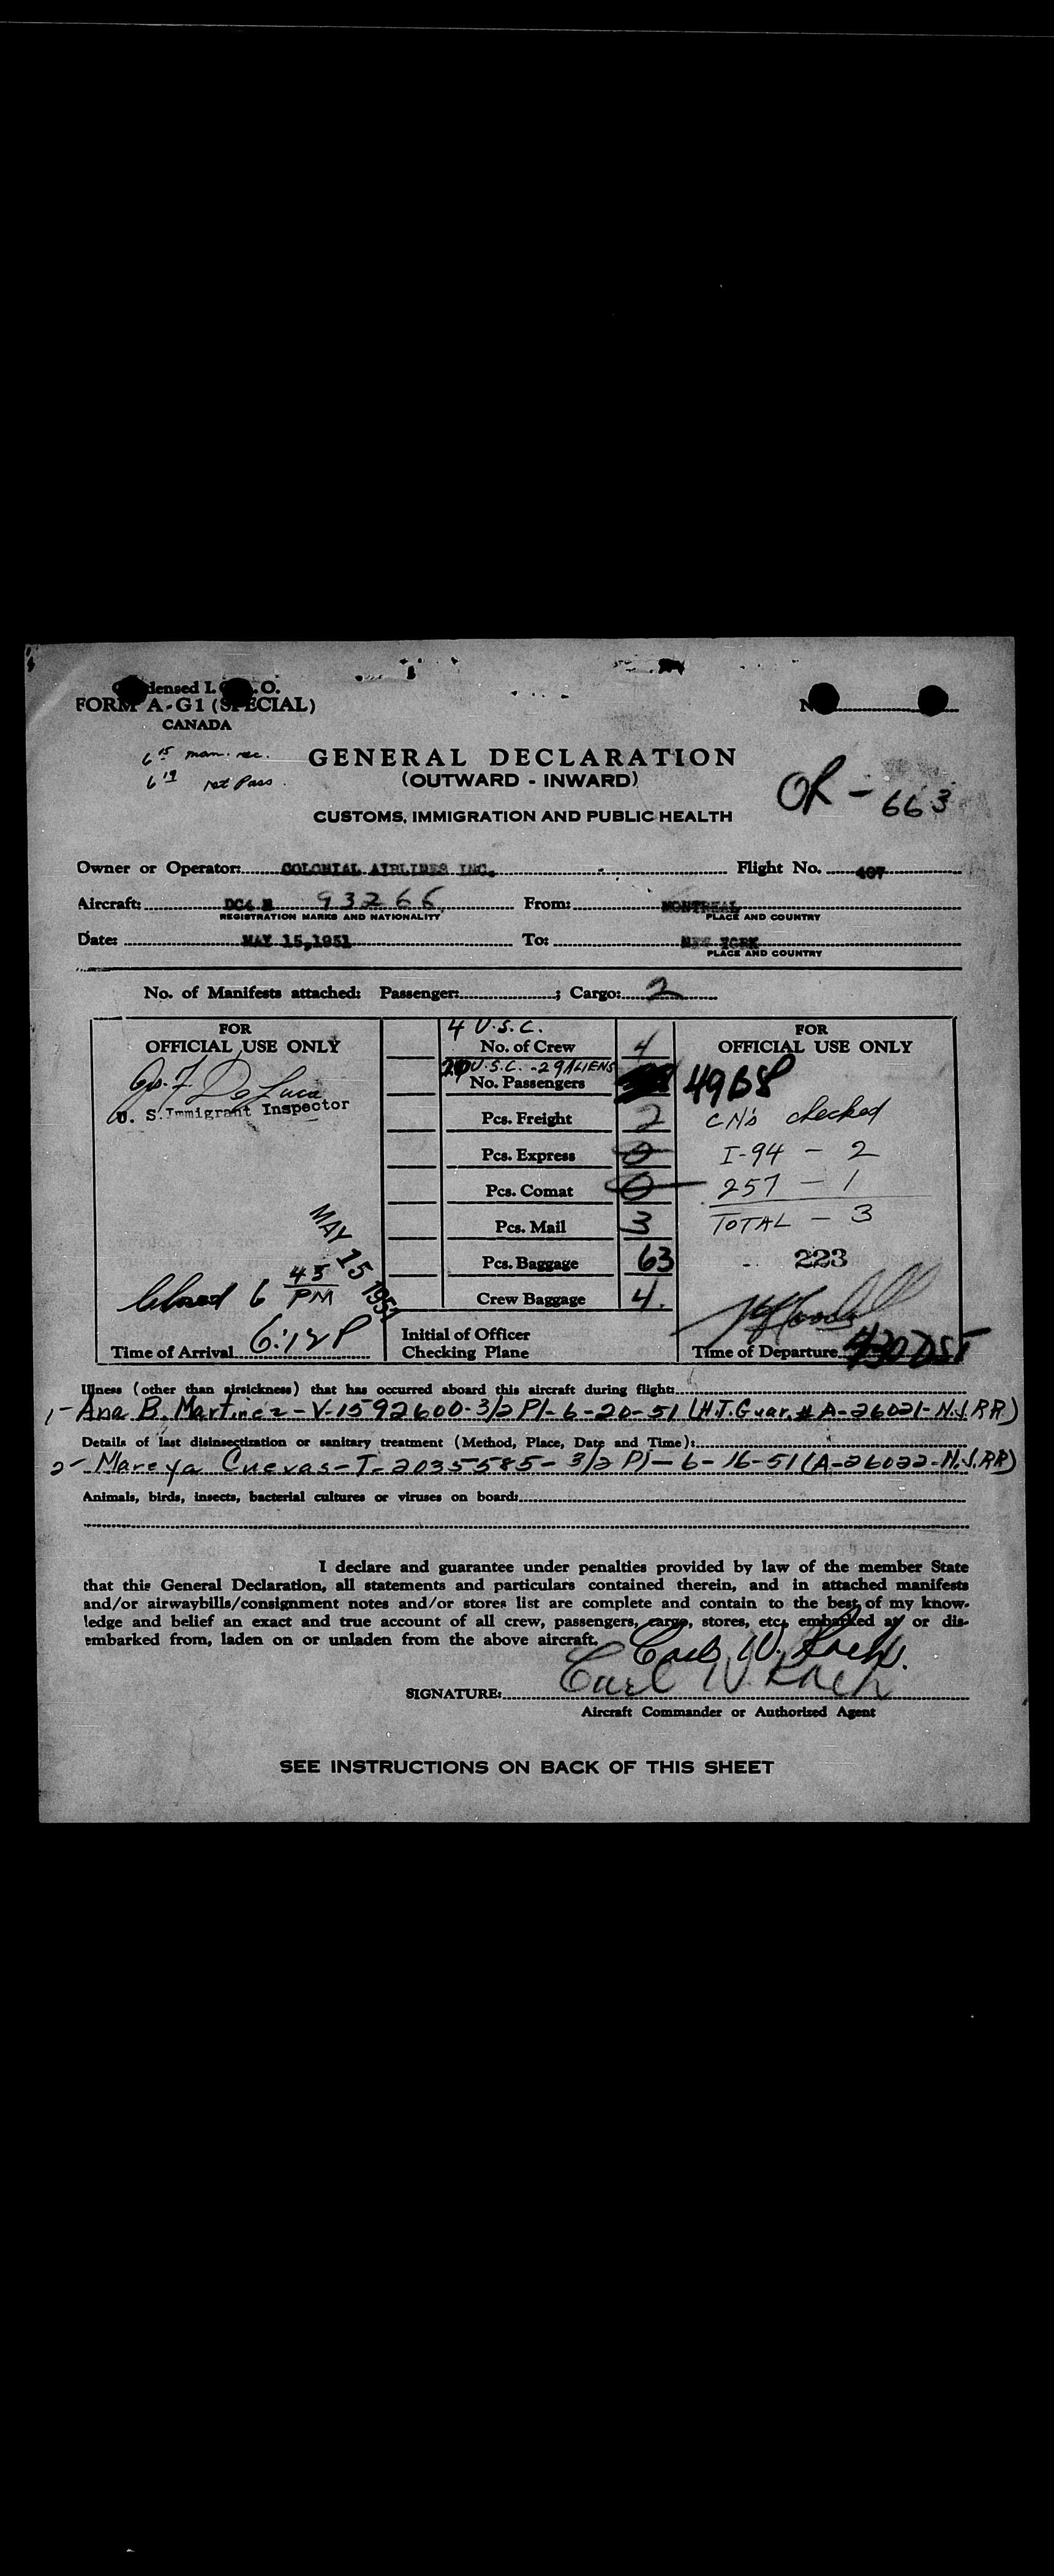 FORM A-G1 (SPECIAL)
CANADA
6 15 man. rec.
6 19 1st Pass.
GENERAL DECLARATION
(OUTWARD - INWARD)
OR - 663
CUSTOMS, IMMIGRATION AND PUBLIC HEALTH
Owner or Operator: COLONIAL AIRLINES INC. Flight No. 407
Aircraft: DC4 N 93266 From: MONTREAL
REGISTRATION MARKS AND NATIONALITY PLACE AND COUNTRY
Date: MAY 15,1951 To: NEW YORK
PLACE AND COUNTRY
No. of Manifests attached: Passenger: ; Cargo: 2
FOR
OFFICIAL USE ONLY
De Luca
U. S. Immigrant Inspector
MAY 15 1951
Closed 6 45 PM
Time of Arrival 6:12P
4 U.S.C.
No. of Crew 4
20 U.S.C. - 29 ALIENS
No. Passengers
Pcs. Freight 2
Pcs. Express 0
Pcs. Comat 0
Pcs. Mail 3
Pcs. Baggage 63
Crew Baggage 4.
Initial of Officer
Checking Plane
FOR
OFFICIAL USE ONLY
49
CN's checked
I-94 - 2
257 - 1
TOTAL - 3
223
Time of Departure 430 DST
Illness (other than airsickness) that has occurred aboard this aircraft during flight:
1- Ana B. Martinez - V-1592600-3/2 Pl-6-20-51 (H.T.Guar.# A-26021-N.J.RR)
Details of last disinsectization or sanitary treatment (Method, Place, Date and Time):
2- Mareya Cuevas-T-2035585-3/2 Pl-6-16-51 (A-26022-N.J.RR)
Animals, birds, insects, bacterial cultures or viruses on board:
I declare and guarantee under penalties provided by law of the member State
that this General Declaration, all statements and particulars contained therein, and in attached manifests
and/or airwaybills/consignment notes and/or stores list are complete and contain to the best of my know-
ledge and belief an exact and true account of all crew, passengers, cargo, stores, etc, embarked at or dis-
embarked from, laden on or unladen from the above aircraft.
Carl W.
SIGNATURE: Carl W.
Aircraft Commander or Authorized Agent
SEE INSTRUCTIONS ON BACK OF THIS SHEET